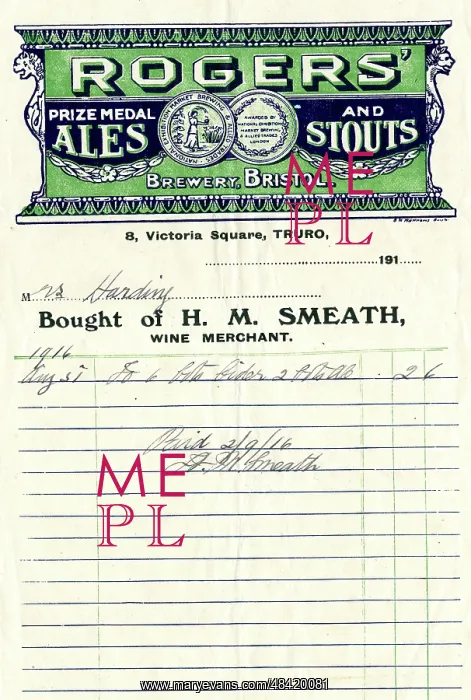 ROGERS'
PRIZE MEDAL ALES
AND STOUTS
NATIONAL EXHIBITION MARKET BREWING & ALLIED TRADES
AWARDED BY NATIONAL EXHIBITION MARKET BREWING & ALLIED TRADES LONDON
BREWERY, BRISTOL
8, Victoria Square, TRURO,
191
Mrs Harding
Bought of H. M. SMEATH,
WINE MERCHANT.
1916
Aug 31 To 6 Bots Cider 2 Bots 2 6
Paid 2/9/16
H. M. Smeath
ME
PL
ME
PL
www.maryevans.com/48420081